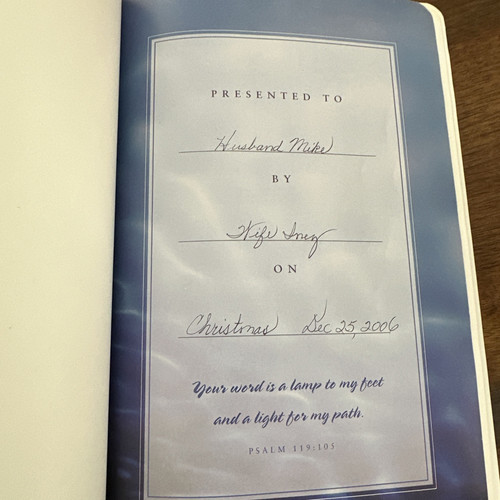 PRESENTED TO
Husband Mike
BY
Wife Inez
ON
Christmas Dec 25, 2006
Your word is a lamp to my feet
and a light for my path.
PSALM 119:105